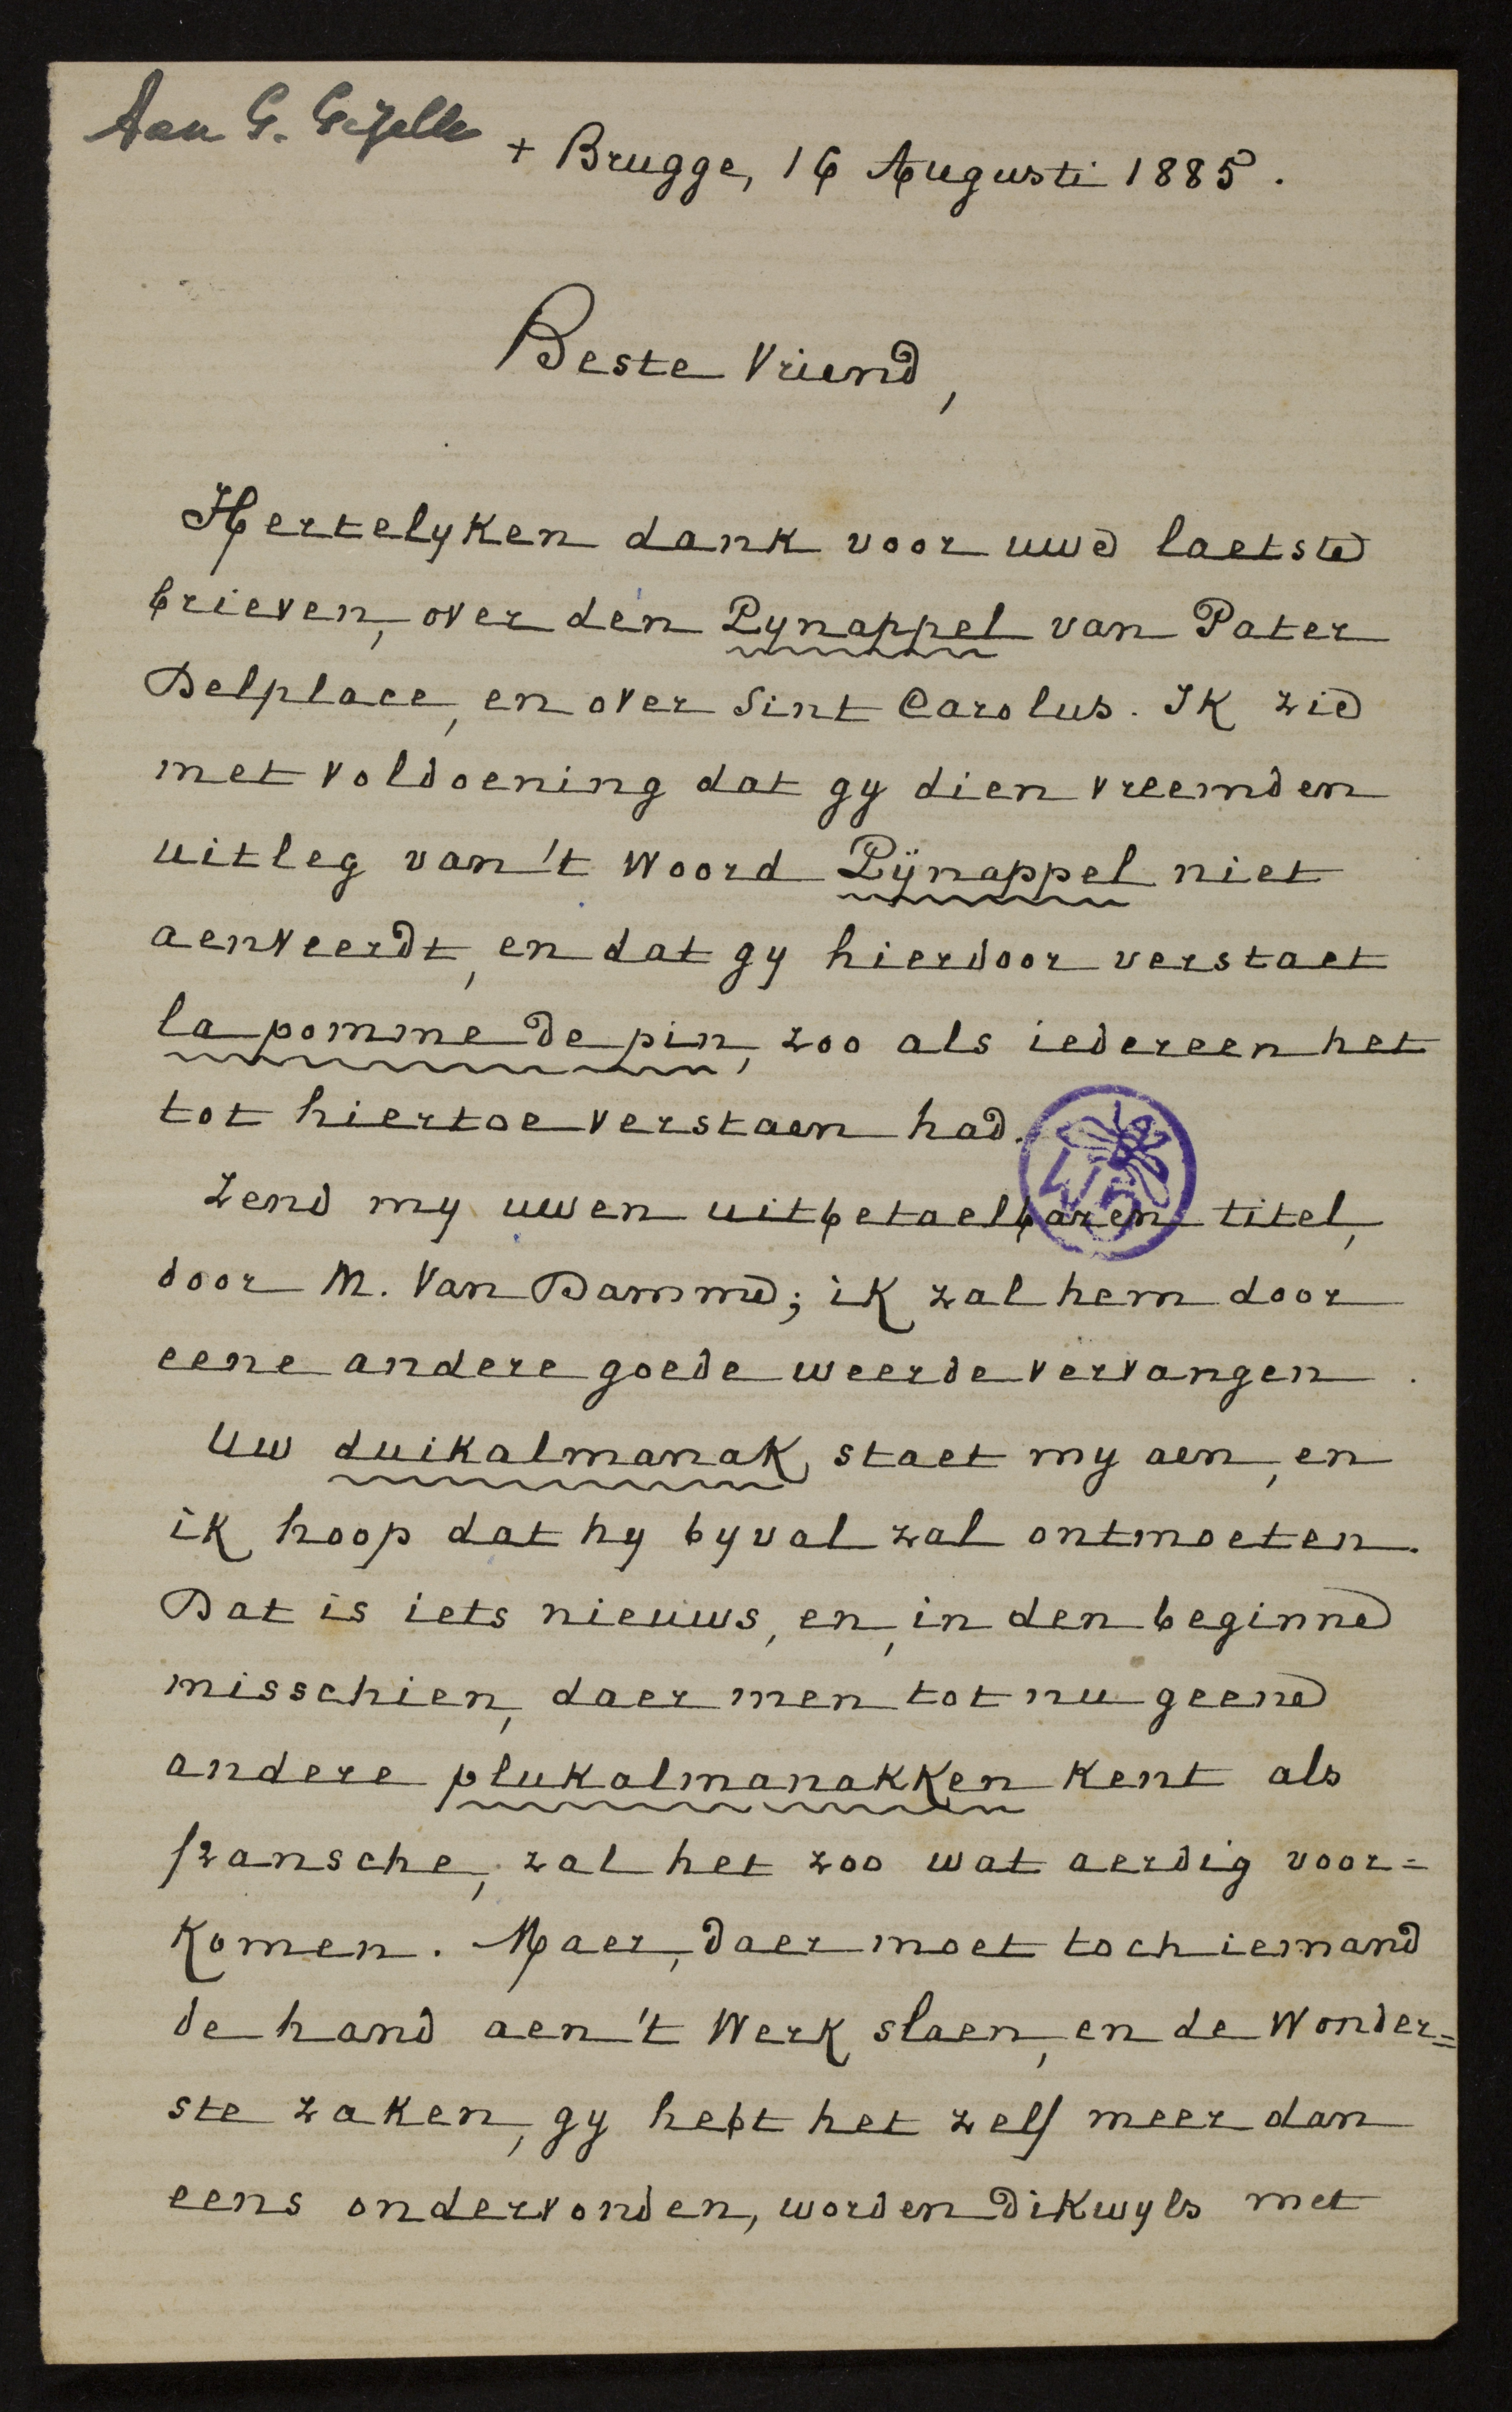 Aan G. Gezelle
+ Brugge, 16 Augusti 1885.
Beste Vriend,
Hertelyken dank voor uwe laetste
brieven, over den Pynappel van Pater
Delplace, en over Sint Carolus. Ik zie
met voldoening dat gy dien vreemden
uitleg van 't woord Pÿnappel niet
aenveerdt, en dat gy hierdoor verstaet
la pomme de pin, zoo als iedereen het
tot hiertoe verstaen had.
Zend my uwen uitbetaelbaren titel,
door M. Van Damme; ik zal hem door
eene andere goede weerde vervangen.
Uw duikalmanak staet my aen, en
ik hoop dat hy byval zal ontmoeten.
Dat is iets nieuws, en, in den beginne
misschien, daer men tot nu geene
andere plukalmanakken kent als
fransche, zal het zoo wat aerdig voor=
komen. Maer, daer moet toch iemand
de hand aen 't werk slaen, en de wonder=
ste zaken, gy hebt het zelf meer dan
eens ondervonden, worden dikwyls met